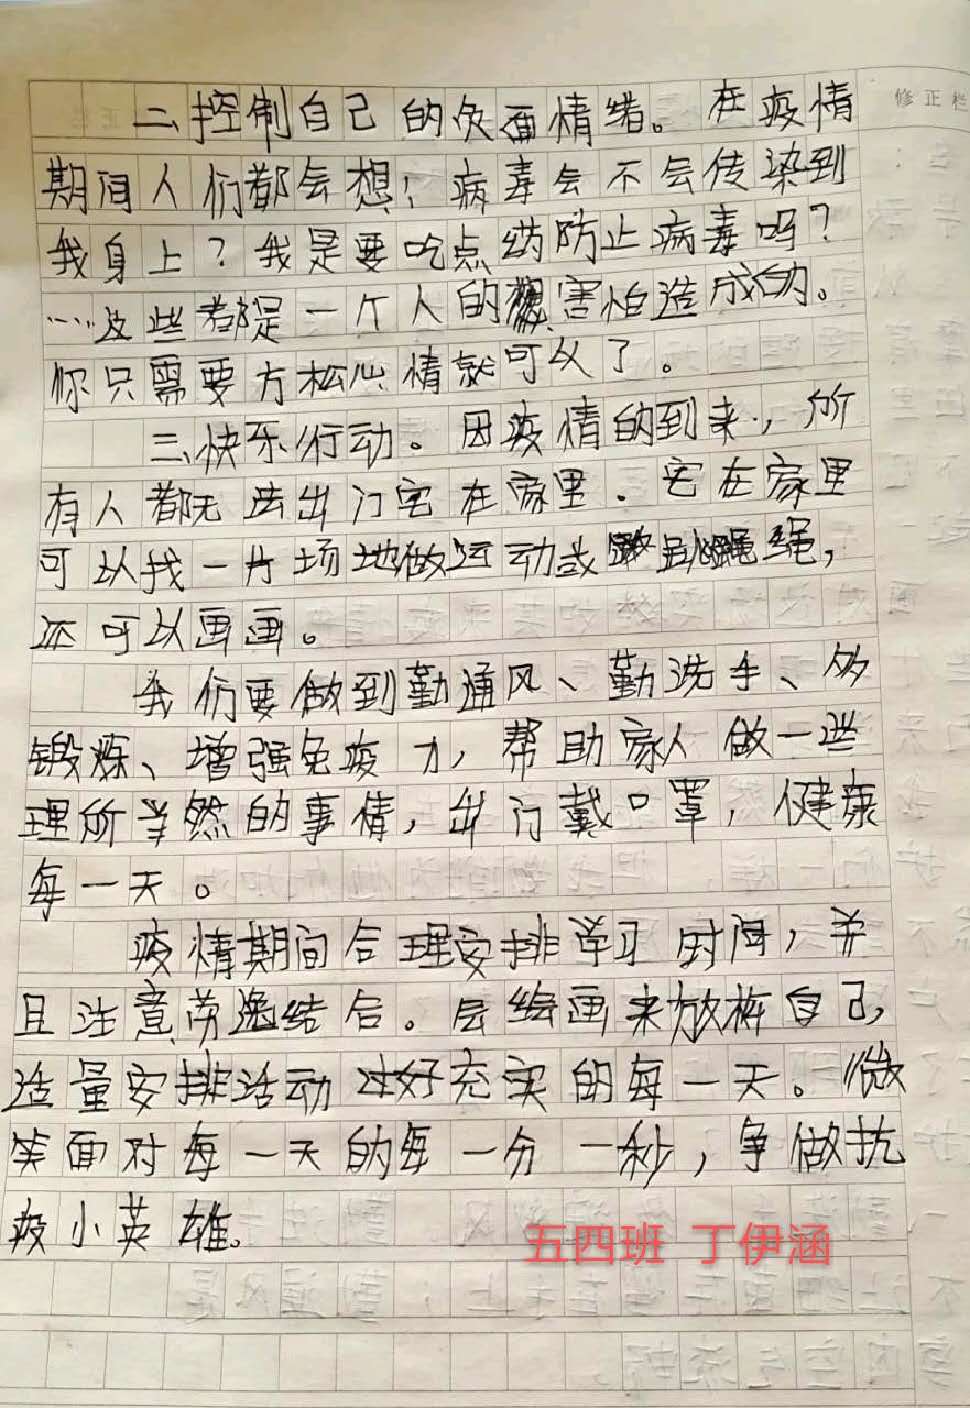 修正栏
二、控制自己的负面情绪。在疫情
期间人们都会想：病毒会不会传染到
我身上？我是要吃点药防止病毒吗？
……这些都是一个人的想害怕造成的。
你只需要方松心情就可以了。
三、快乐行动。因疫情的到来，所
有人都无法出门宅在家里．宅在家里
可以找一片场地做运动或跳绳，
还可以画画。
我们要做到勤通风、勤洗手、多
锻炼、增强免疫力，帮助家人做一些
理所当然的事情，出门戴口罩，健康
每一天。
疫情期间合理安排学习时间，并
且注意劳逸结合。会绘画来放松自己，
适量安排活动过好充实的每一天。微
笑面对每一天的每一分一秒，争做抗
疫小英雄。
五四班 丁伊涵